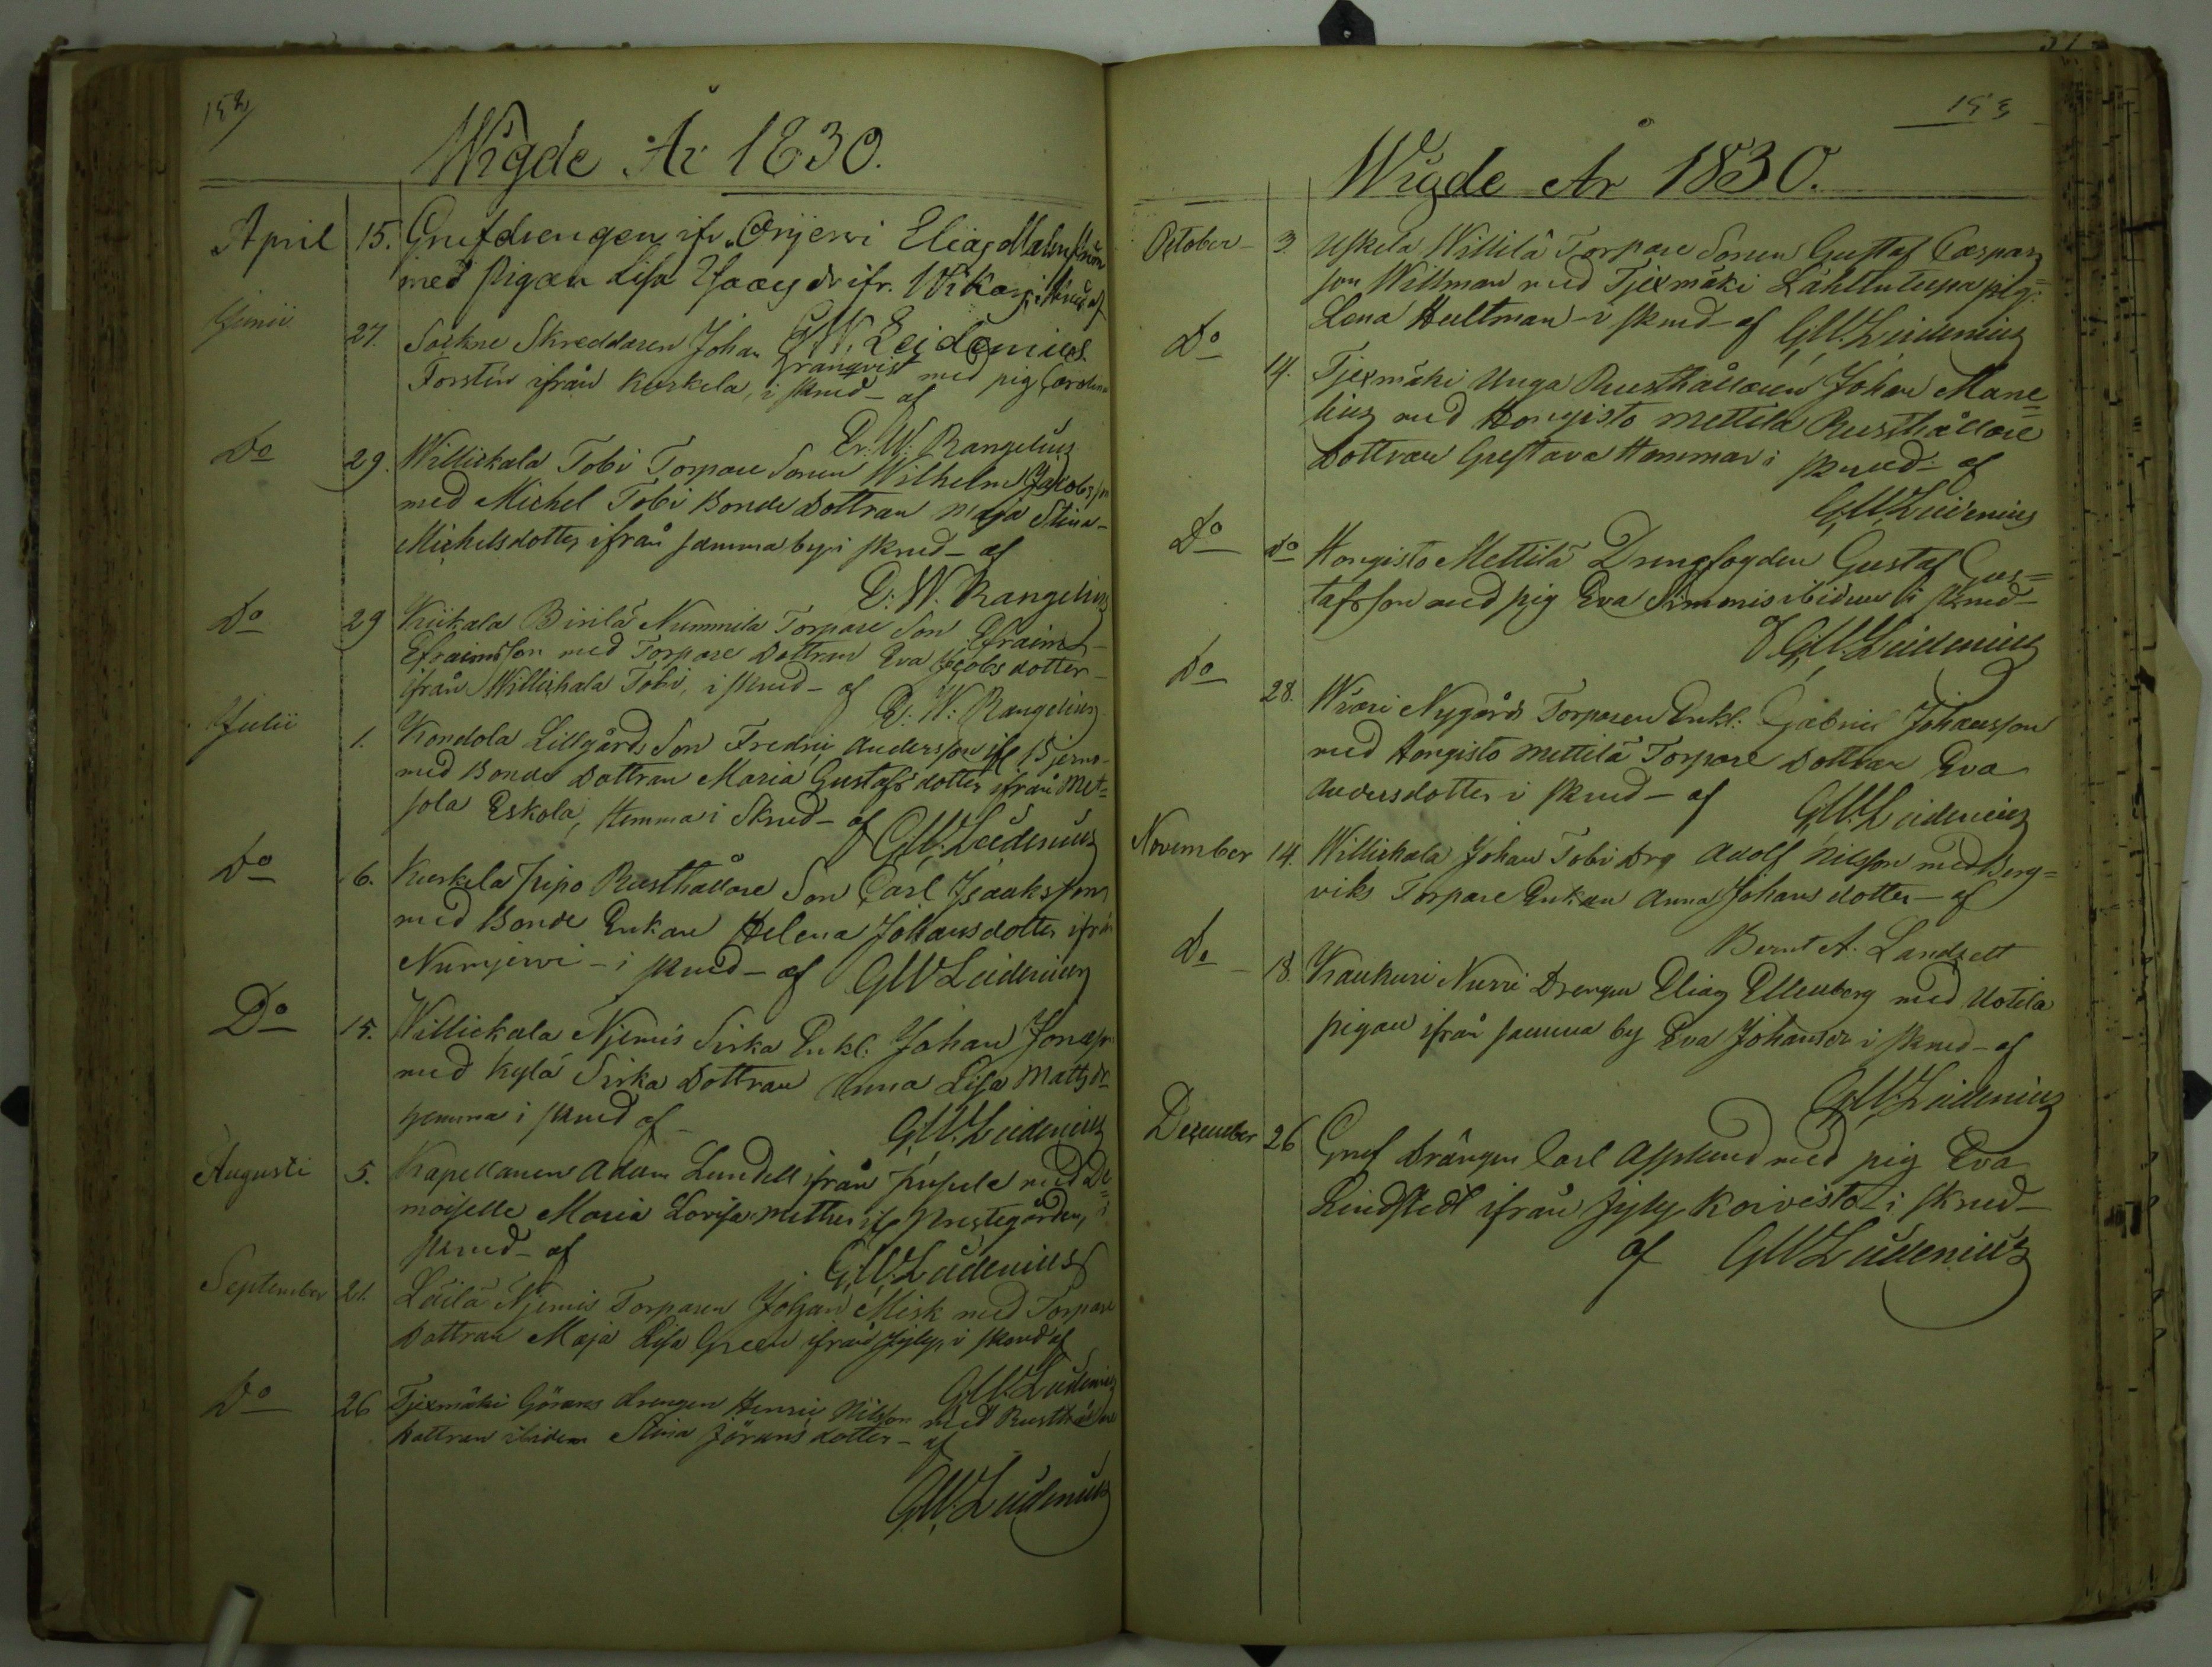 152
Wigde År 1830.
April 15. Grufdrengen ifr. Orijerwi Elias Malmström
med Pigan Lisa Isaacs dr ifr. Wikars i skrud af
G. W. Leidenius.
Junii 27. Sockne Skreddaren Johan Granqvist med pig Carolina
Forstén ifrån Kurkela, i skrud - af
E. W. Rangelius
Do 29. Willickala Tobi Torpare Sonen Wilhelm Jacobsson
med Michel Tobi Bonde Dottran Maja Stina
Michelsdotter ifrån samma by i skrud - af
E. W. Rangelius
Do 29 Kiikala Birilä Nummila Torpare Son Efraim
Efraimsson med Torpare Dottran Eva Jacobs dotter
ifrån Willickala Tobi, i skrud - af E. W. Rangelius
Julii 1. Kondola Lillgårds Son Fredric Andersson if. Bjerno
med Bonde Dottran Maria Gustafs dotter ifrån Met=
sola Eskola, hemma i Skrud - af GW. Leidenius
Do 6. Kurkela Pipo Rusthållare Son Carl Isaaksson
med Bonde Enkan Helena Johansdotter ifrån
Numjerwi - i skrud - af GW Leidenius
Do 15. Willickala Njemis Sirka Enkl. Johan Jonass.
med Kylä Sirka Dottran Anna Lisa Matts dr
hemma i skrud af - GW. Leidenius
Augusti 5. Kapellanen Adam Lundell ifrån Pusula med De=
moiselle Maria Lovisa Mether if. Prestegården, i
skrud - af GW. Leidenius
September 21. Leilä Njemis Torparen Johan Misk med Torpare
Dottran Maja Lisa Green ifrån Jyly, i skrud af
GW. Leidenius
Do 26 Tjexmäki Görans drengen Henric Nilsson med Rusthållare
Dottran ibidem Stina Jörans dotter - af
GW. Leidenius
153
Wigde År 1830.
October - 3. Uskela Willilä Torpare Sonen Gustaf Caspars
son Willman med Tjexmäki Lähteentupa pig.
Lena Hultman - i skrud - af GW. Leidenius
Do 14. Tjexmäki Unga Rusthållaren Johan Mane=
lius med Hongisto Mettilä Rusthållare
Dottran Gustava Hammar i skrud - af
GW Leidenius
Do do Hongisto Mettilä Drengfogden Gustaf Gus=
tafsson med pig Eva Simmis ibidem i skrud -
GW. Leidenius
Do 28. Wiari Nygårds Torparen Enkl. Gabriel Johansson
med Hongisto Mettilä Torpare Dottran Eva
Andersdotter i skrud - af GW. Leidenius
November 14. Willickala Johan Tobi Drg Adolf Nilsson med Berg=
viks Torpare Enkan Anna Johans dotter - af
Bernt A. Landzett
Do - 18. Kaukuri Nurri Drengen Elias Ellenberg med Uotila
pigan ifrån samma by Eva Johansdr i skrud - af
GW. Leidenius
Dezember 26 Gruf Drängen Carl Asplund med pig Eva
Lindstedt ifrån Jyly Koivisto i skrud -
af GW Leidenius